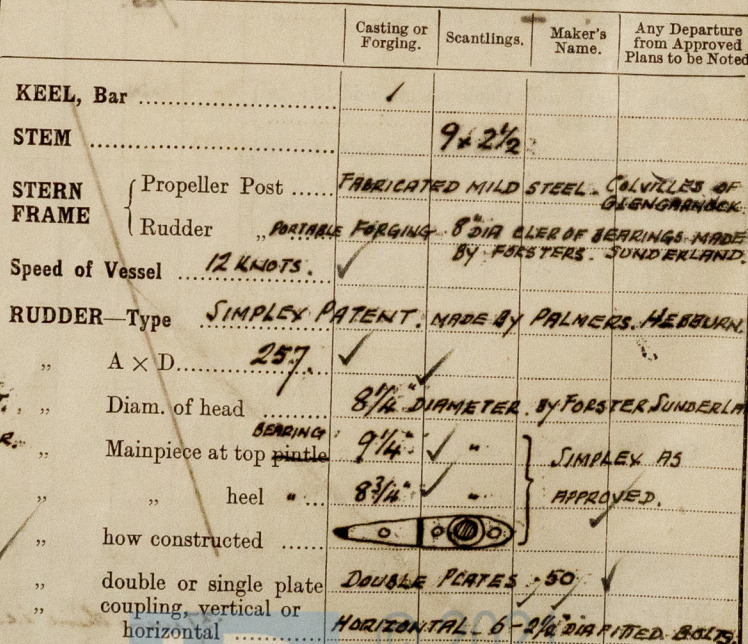 Casting or Forging. Scantlings. Maker's Name. Any Departure from Approved Plans to be Noted
KEEL, Bar
STEM 9 x 2½
STERN FRAME { Propeller Post FABRICATED MILD STEEL. COLVILLES OF GLENGARNOCK
Rudder „ PORTABLE FORGING 8" DIA CLER OF BEARINGS MADE
BY FORSTERS. SUNDERLAND.
Speed of Vessel 12 KNOTS.
RUDDER—Type SIMPLEX PATENT. MADE BY PALMERS. HEBBURN.
„ A × D 257.
„ Diam. of head 8¼" DIAMETER. BY FORSTER SUNDERLA
BEARING
„ Mainpiece at top pintle 9¼" „ SIMPLEX AS
„ „ heel " 8¾" „ APPROVED.
„ how constructed
„ double or single plate DOUBLE PLATES .50
„ coupling, vertical or
horizontal HORIZONTAL. 6 - DIA FITTED BOLTS